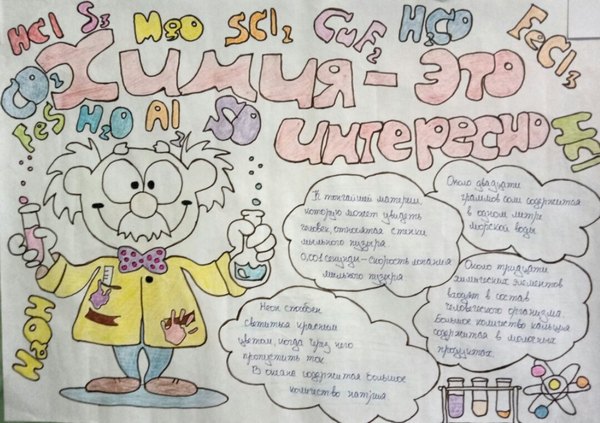 HCl S₃ MgO SCl₂ CuF₂ H₂CO FeCl₃
CO₂ Химия - это
FeS H₂O Al₂ SO интересно HCl
К тончайшей материи,
которую может увидеть
человек, относятся стенки
мыльного пузыря.
0,001 секунды - скорость лопания
мыльного пузыря
Около двадцати
граммов соли содержится
в одном литре
морской воды
Около тридцати
химических элементов
входят в состав
человеческого организма.
Большое количество кальция
содержится в молочных
продуктах.
Неон способен
светиться красным
цветом, когда через него
пропустить ток.
В океане содержится большое
количество натрия